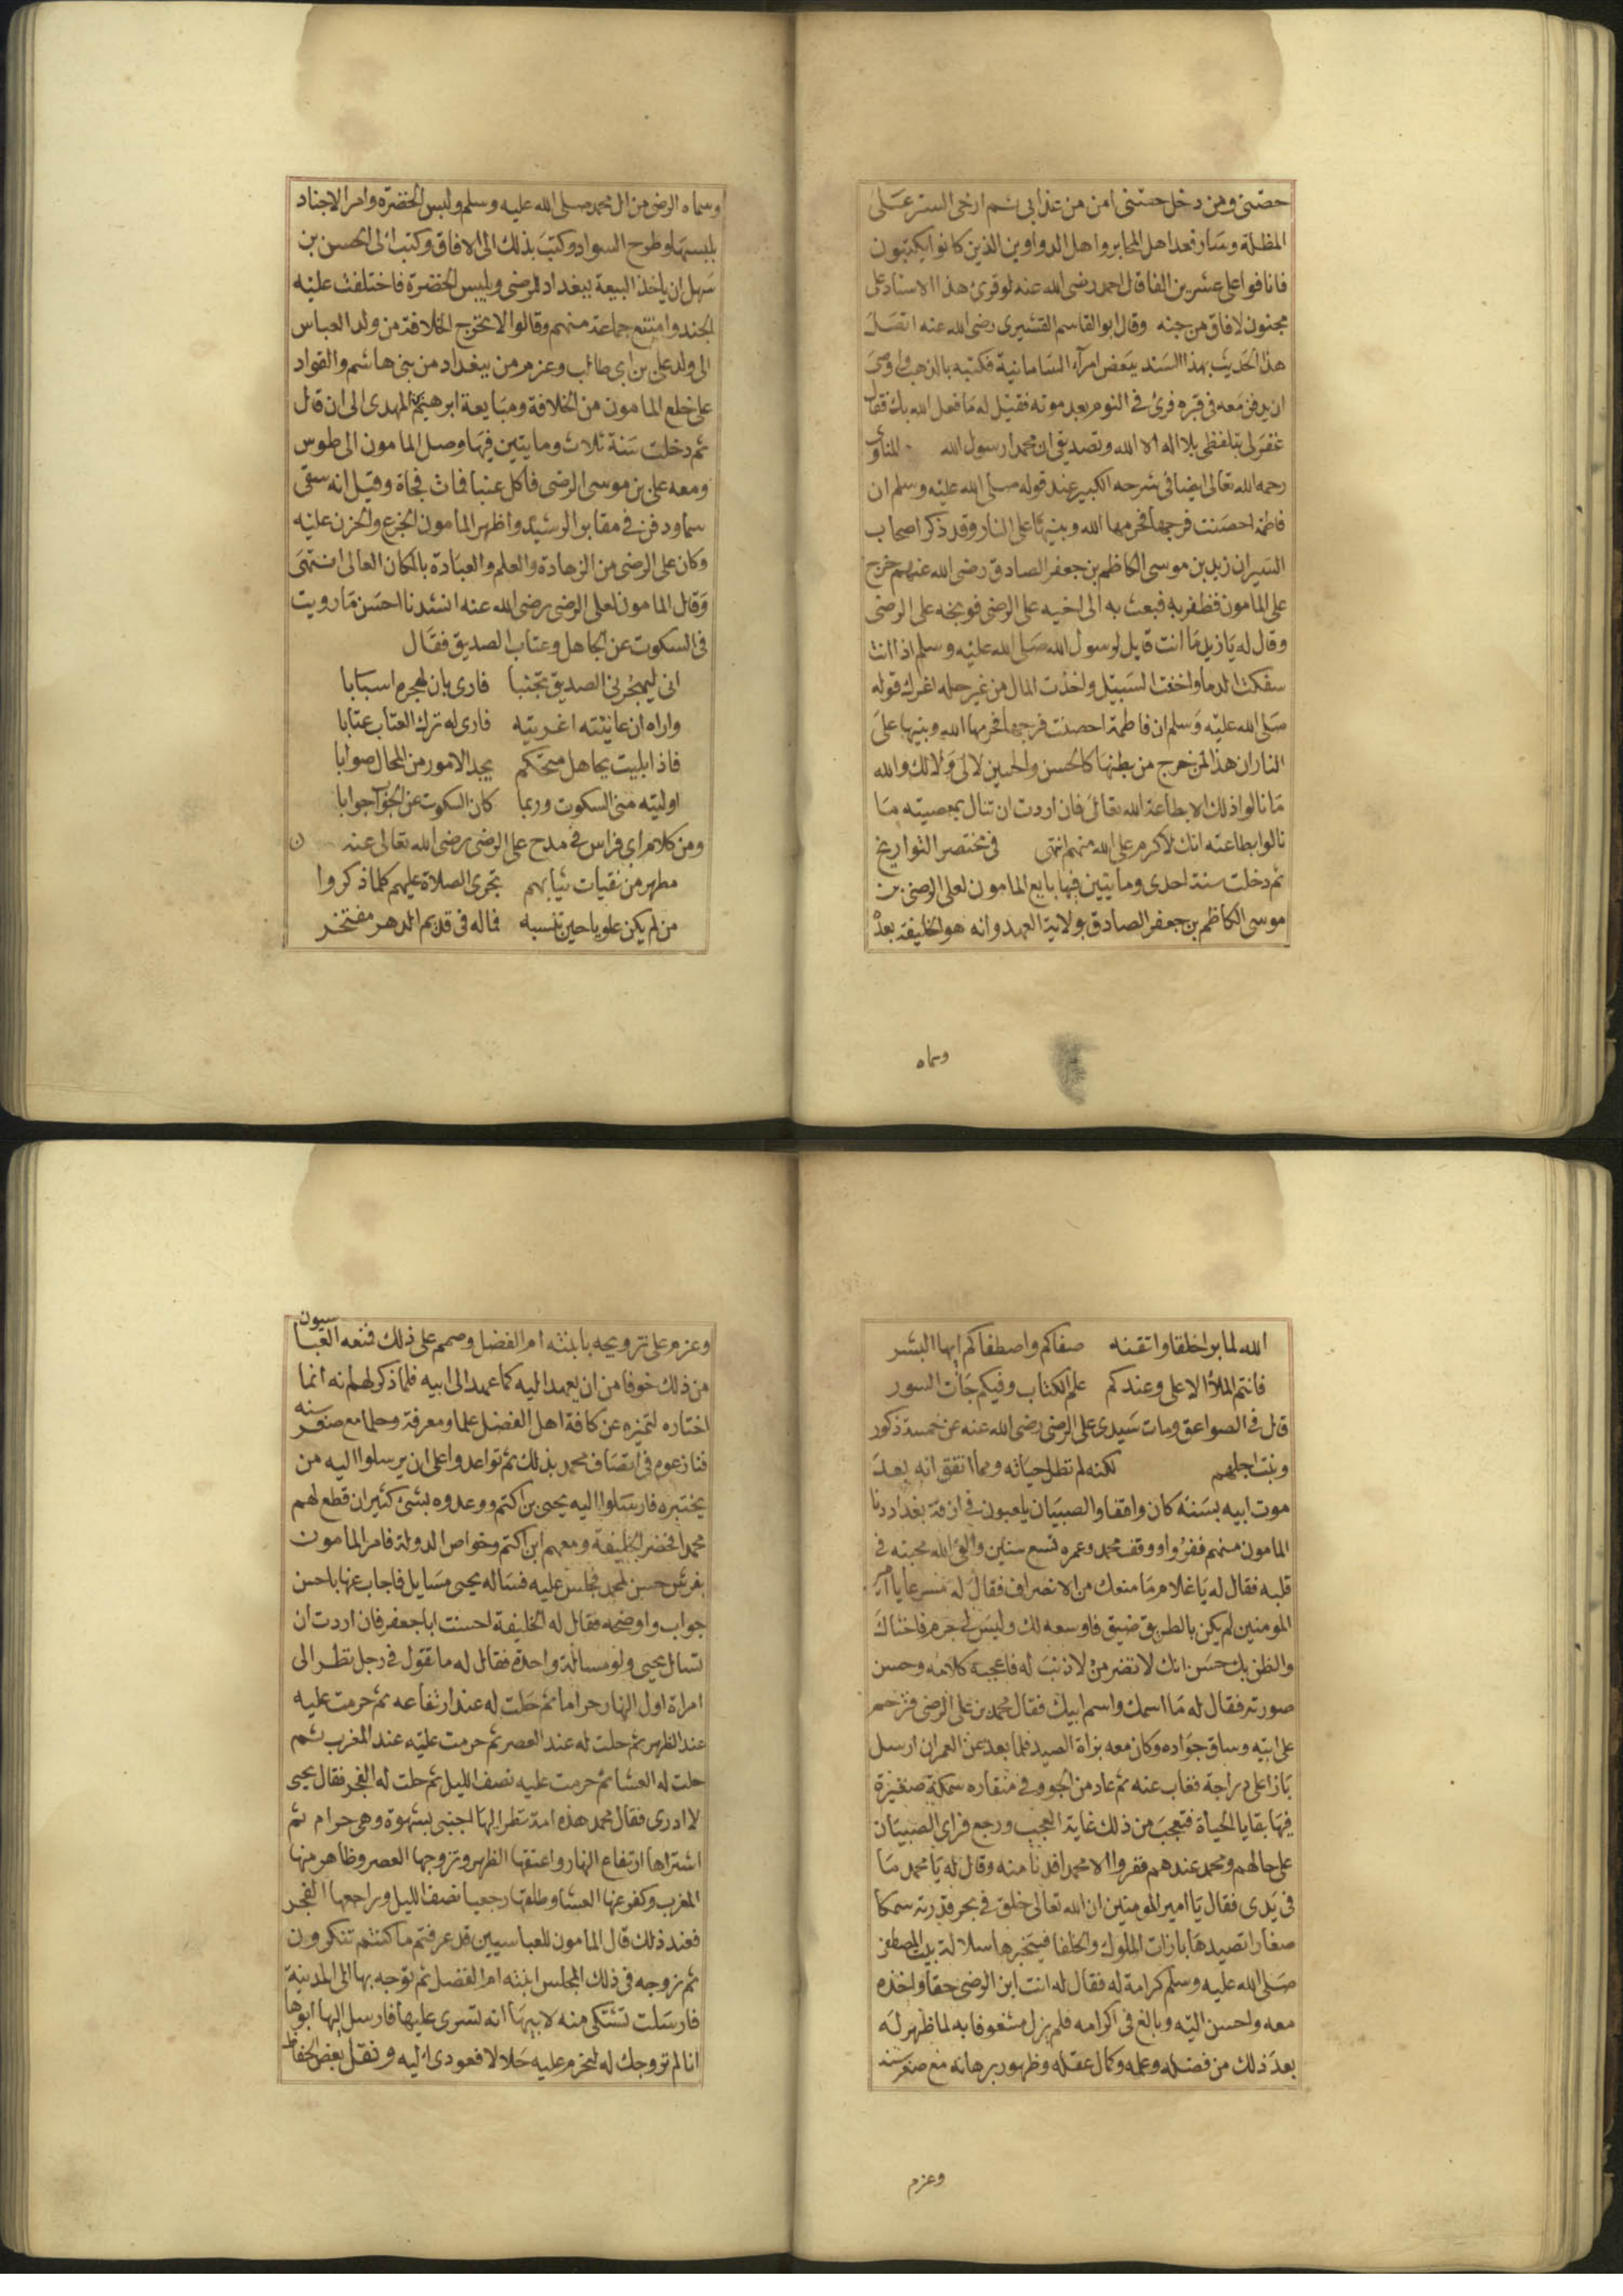 حصتنى ومن دخل حصتنى امن من عذابى ثم ارخى الستر على
المظلة وسار فعد اهل المحابر واهل الدواوين الذين كانوا يكتبون
فانافوا على عشرين الفا قال احمد رضى الله عنه لو قرئ هذا الاسناد على
مجنون لافاق من جنه وقال ابو القاسم القشيرى رضى الله عنه اتصل
هذا الحديث بهذا السند ببعض امراء السامانية فكتبه بالذهب واوصى
ان يدفن معه فى قبره فرئ فى النوم بعد موته فقيل له ما فعل الله بك فقال
غفر لى بتلفظى بلا اله الا الله وتصديقى ان محمدا رسول الله المناوى
رحمه الله تعالى ايضا فى شرحه الكبير عند قوله صلى الله عليه وسلم ان
فاطمة احصنت فرجها فحرمها الله وبنيها على النار وقد ذكر اصحاب
السير ان زيد بن موسى الكاظم بن جعفر الصادق رضى الله عنهم خرج
على المامون فظفر به فبعث به الى اخيه على الرضى فوبخه على الرضى
وقال له يا زيد ما انت قايل لرسول الله صلى الله عليه وسلم اذا انت
سفكت الدما واخفت السبيل واخذت المال من غير حله اغرك قوله
صلى الله عليه وسلم ان فاطمة احصنت فرجها فحرمها الله وبنيها على
النار ان هذا لمن خرج من بطنها كالحسن والحسين لا لى ولا لك والله
ما نالوا ذلك الا بطاعة الله تعالى فان اردت ان تنال بمعصيته ما
نالوا بطاعته انك لاكرم على الله منهم انتهى فى مختصر التواريخ
ثم دخلت سنة احدى ومايتين فيها بايع المامون لعلى الرضى بن
موسى الكاظم بن جعفر الصادق بولاية العهد وانه هو الخليفة بعده
وسماه
وسماه الرضى من ال محمد صلى الله عليه وسلم ولبس الخضرة وامر الاجناد
بلبسها وطرح السواد وكتب بذلك الى الافاق وكتب الى الحسن بن
سهل ان ياخذ البيعة ببغداد للرضى ويلبس الخضرة فاختلفت عليه
الجند وامتنع جماعة منهم وقالوا لا تخرج الخلافة من ولد العباس
الى ولد على بن ابى طالب وعزم من ببغداد من بنى هاشم والقواد
على خلع المامون من الخلافة ومبايعة ابرهيم بن المهدى الى ان قال
ثم دخلت سنة ثلاث ومايتين فيها وصل المامون الى طوس
ومعه على بن موسى الرضى فاكل عنبا فمات فجاة وقيل انه سقى
سما ودفن فى مقابر الرشيد واظهر المامون الجزع والحزن عليه
وكان على الرضى من الزهادة والعلم والعبادة بالمكان العالى انتهى
وقال المامون لعلى الرضى رضى الله عنه انشدنا احسن ما رويت
فى السكوت عن الجاهل وعتاب الصديق فقال
انى ليهجرنى الصديق تجنبا فارى بان لهجره اسبابا
واراه ان عاتبته اغريته فارى له ترك العتاب عتابا
فاذا بليت بجاهل متحكم يجد الامور من المحال صوابا
اوليته منى السكوت وربما كان السكوت عن الجواب جوابا
ومن كلام ابى فراس فى مدح على الرضى رضى الله تعالى عنه ن
مطهر من نقيات ثيابهم تجرى الصلاة عليهم كلما ذكروا
من لم يكن علويا حين تنسبه فماله فى قديم الدهر مفتخر
الله لما برا خلقا واتقنه صفاكم واصطفاكم ايها البشر
فانتم الملأ الاعلى وعندكم علم الكتاب وفيكم جات السور
قال فى الصواعق ومات سيدى على الرضى رضى الله عنه عن خمسة ذكور
وبنت اجلهم لكنه لم تطل حياته ومما اتفق انه بعد
موت ابيه بسنة كان واقفا والصبيان يلعبون فى ازقة بغداد دنا
المامون منهم ففروا ووقف محمد وعمره تسع سنين والقى الله محبته فى
قلبه فقال له يا غلام ما منعك من الانصراف فقال له مسرعا يا امير
المومنين لم يكن بالطريق ضيق فاوسعه لك وليس لى جرم فاخشاك
والظن بك حسن انك لا تضر من لا ذنب له فاعجبه كلامه وحسن
صورته فقال له ما اسمك واسم ابيك فقال محمد بن على الرضى فترحم
على ابيه وساق جواده وكان معه بزاة الصيد فلما بعد عن العمران ارسل
بازا على دراجة فغاب عنه ثم عاد من الجو وفى منقاره سمكة صغيرة
فيها بقايا الحياة فتعجب من ذلك غاية العجب ورجع فراى الصبيان
على حالهم ومحمد عندهم ففروا الا محمد افدنا منه وقال له يا محمد ما
فى يدى فقال يا امير المومنين ان الله تعالى خلق فى بحر قدرته سمكا
صغارا تصيدها بازات الملوك والخلفا فيتخبر بها سلالة بيت المصطفى
صلى الله عليه وسلم كرامة له فقال له انت ابن الرضى حقا واخذه
معه واحسن اليه وبالغ فى اكرامه فلم يزل مشغوفا به لما ظهر له
بعد ذلك من فضله وعلمه وكمال عقله وظهور برهانه مع صغر سنه
وعزم
وعزم على تزويجه بابنته ام الفضل وصمم على ذلك فمنعه العباسيون
من ذلك خوفا من ان يعهد اليه كما عهد الى ابيه فلما ذكر لهم انه انما
اختاره لتميزه عن كافة اهل الفضل علما ومعرفة وحلما مع صغر سنه
فنازعوه فى اتصاف محمد بذلك ثم تواعدوا على ان يرسلوا اليه من
يختبره فارسلوا اليه يحيى بن اكتم ووعدوه بشئ كثير ان قطع لهم
محمدا فحضر الخليفة ومعهم ابن اكتم وخواص الدولة فامر المامون
بفرش حسن لمحمد فجلس عليه فساله يحيى مسايل فاجاب عنها باحسن
جواب واوضحه فقال له الخليفة احسنت ابا جعفر فان اردت ان
تسال يحيى ولو مسالة واحدة فقال له ما تقول فى رجل نظر الى
امراة اول النهار حراما ثم حلت له عند ارتفاعه ثم حرمت عليه
عند الظهر ثم حلت له عند العصر ثم حرمت عليه عند المغرب ثم
حلت له العشا ثم حرمت عليه نصف الليل ثم حلت له الفجر فقال يحيى
لا ادرى فقال محمد هذه امة نظر اليها اجنبى بشهوة وهى حرام ثم
اشتراها ارتفاع النهار واعتقها الظهر وتزوجها العصر وظاهر منها
المغرب وكفر عنها العشا وطلقها رجعيا نصف الليل وراجعها الفجر
فعند ذلك قال المامون للعباسيين قد عرفتم ما كنتم تنكرون
ثم زوجه فى ذلك المجلس ابنته ام الفضل ثم توجه بها الى المدينة
فارسلت تشتكى منه لابيها انه تسرى عليها فارسل اليها ابوها
انا لم نزوجك له لنحرم عليه حلالا فعودى اليه ونقل بعض الحفاظ